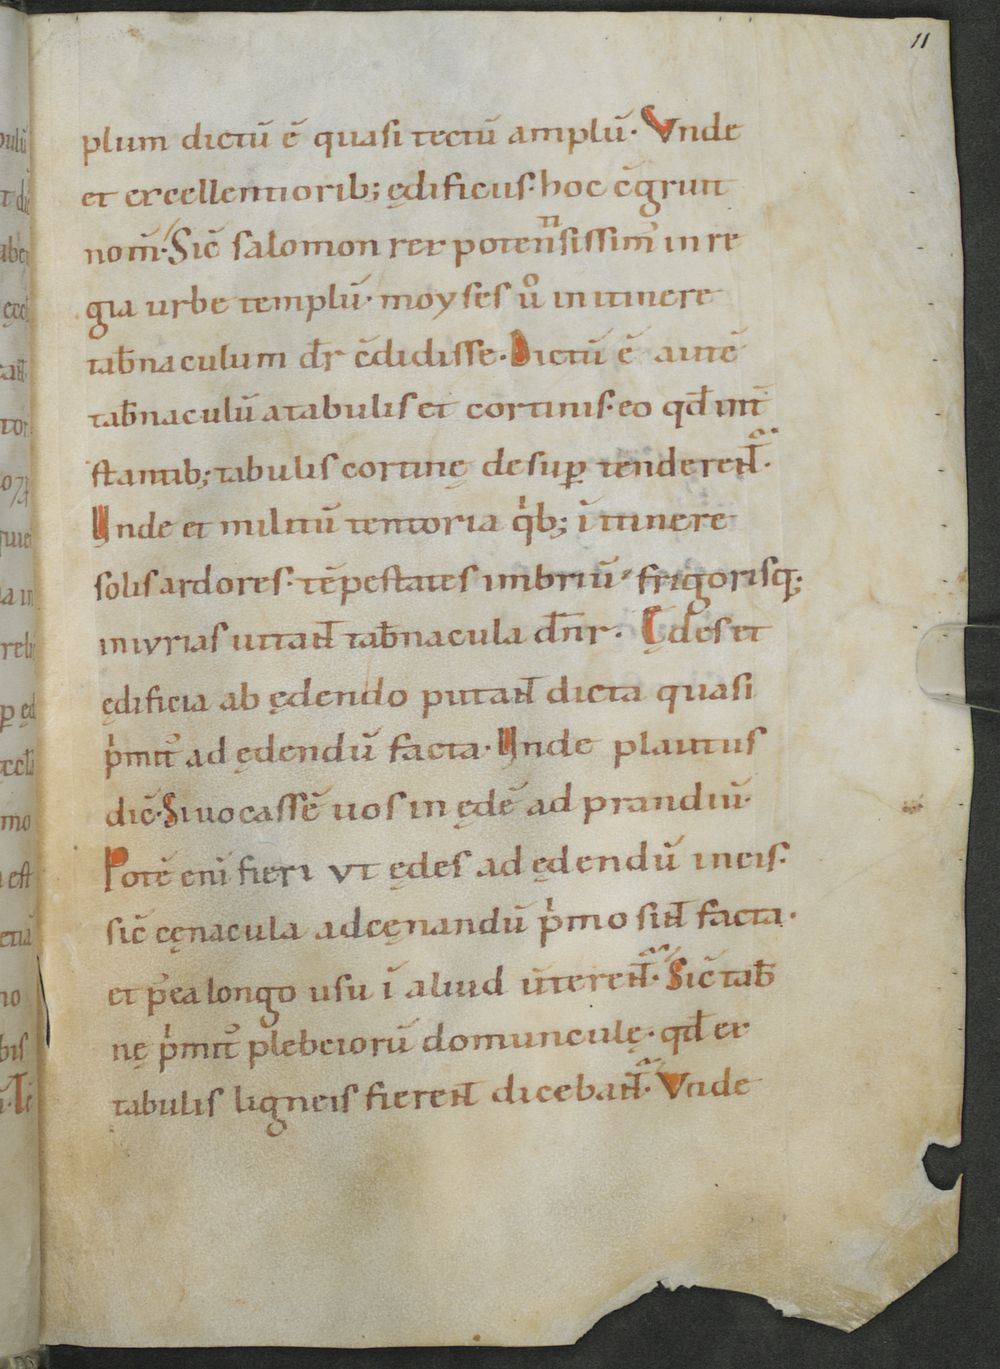 11
plum dictū ē quasi tectū amplū· Vnde
et excellentiorib; ędificiis· hoc c̄gruit
nom̄· Sic̄ salomon rex potentissim' in re
gia urbe templū· moyses ū° in itinere
tab̄naculum d̄r c̄didisse· Dictū ē autē
tab̄naculū a tabulis et cortinis· eo qđ int̄
stantib; tabulis cortinę desup̱ tenderent̄·
Vnde et militū tentoria qͥb; ī itinere
solis ardores· tēpestates imbriū· frigorisq;
iniurias uitant tab̄nacula d̄nr· Ędes et
ędificia ab ędendo putant dicta quasi
pͥmit᷒ ad ędendū facta· Vnde plautus
dic̄· Si uocassē uos in ędē ad prandiū·
Potē eni fieri vt ędes ad ędendū in eis·
sic̄ cęnacula ad cęnandū pͥmo sint facta·
et p᷒ea longo usu ī aliud ūterent̄· Sic̄ tab̄
nę pͥmit᷒ plebeiorū domunculę· qđ ex
tabulis ligneis fierent diceban̄t· Vnde